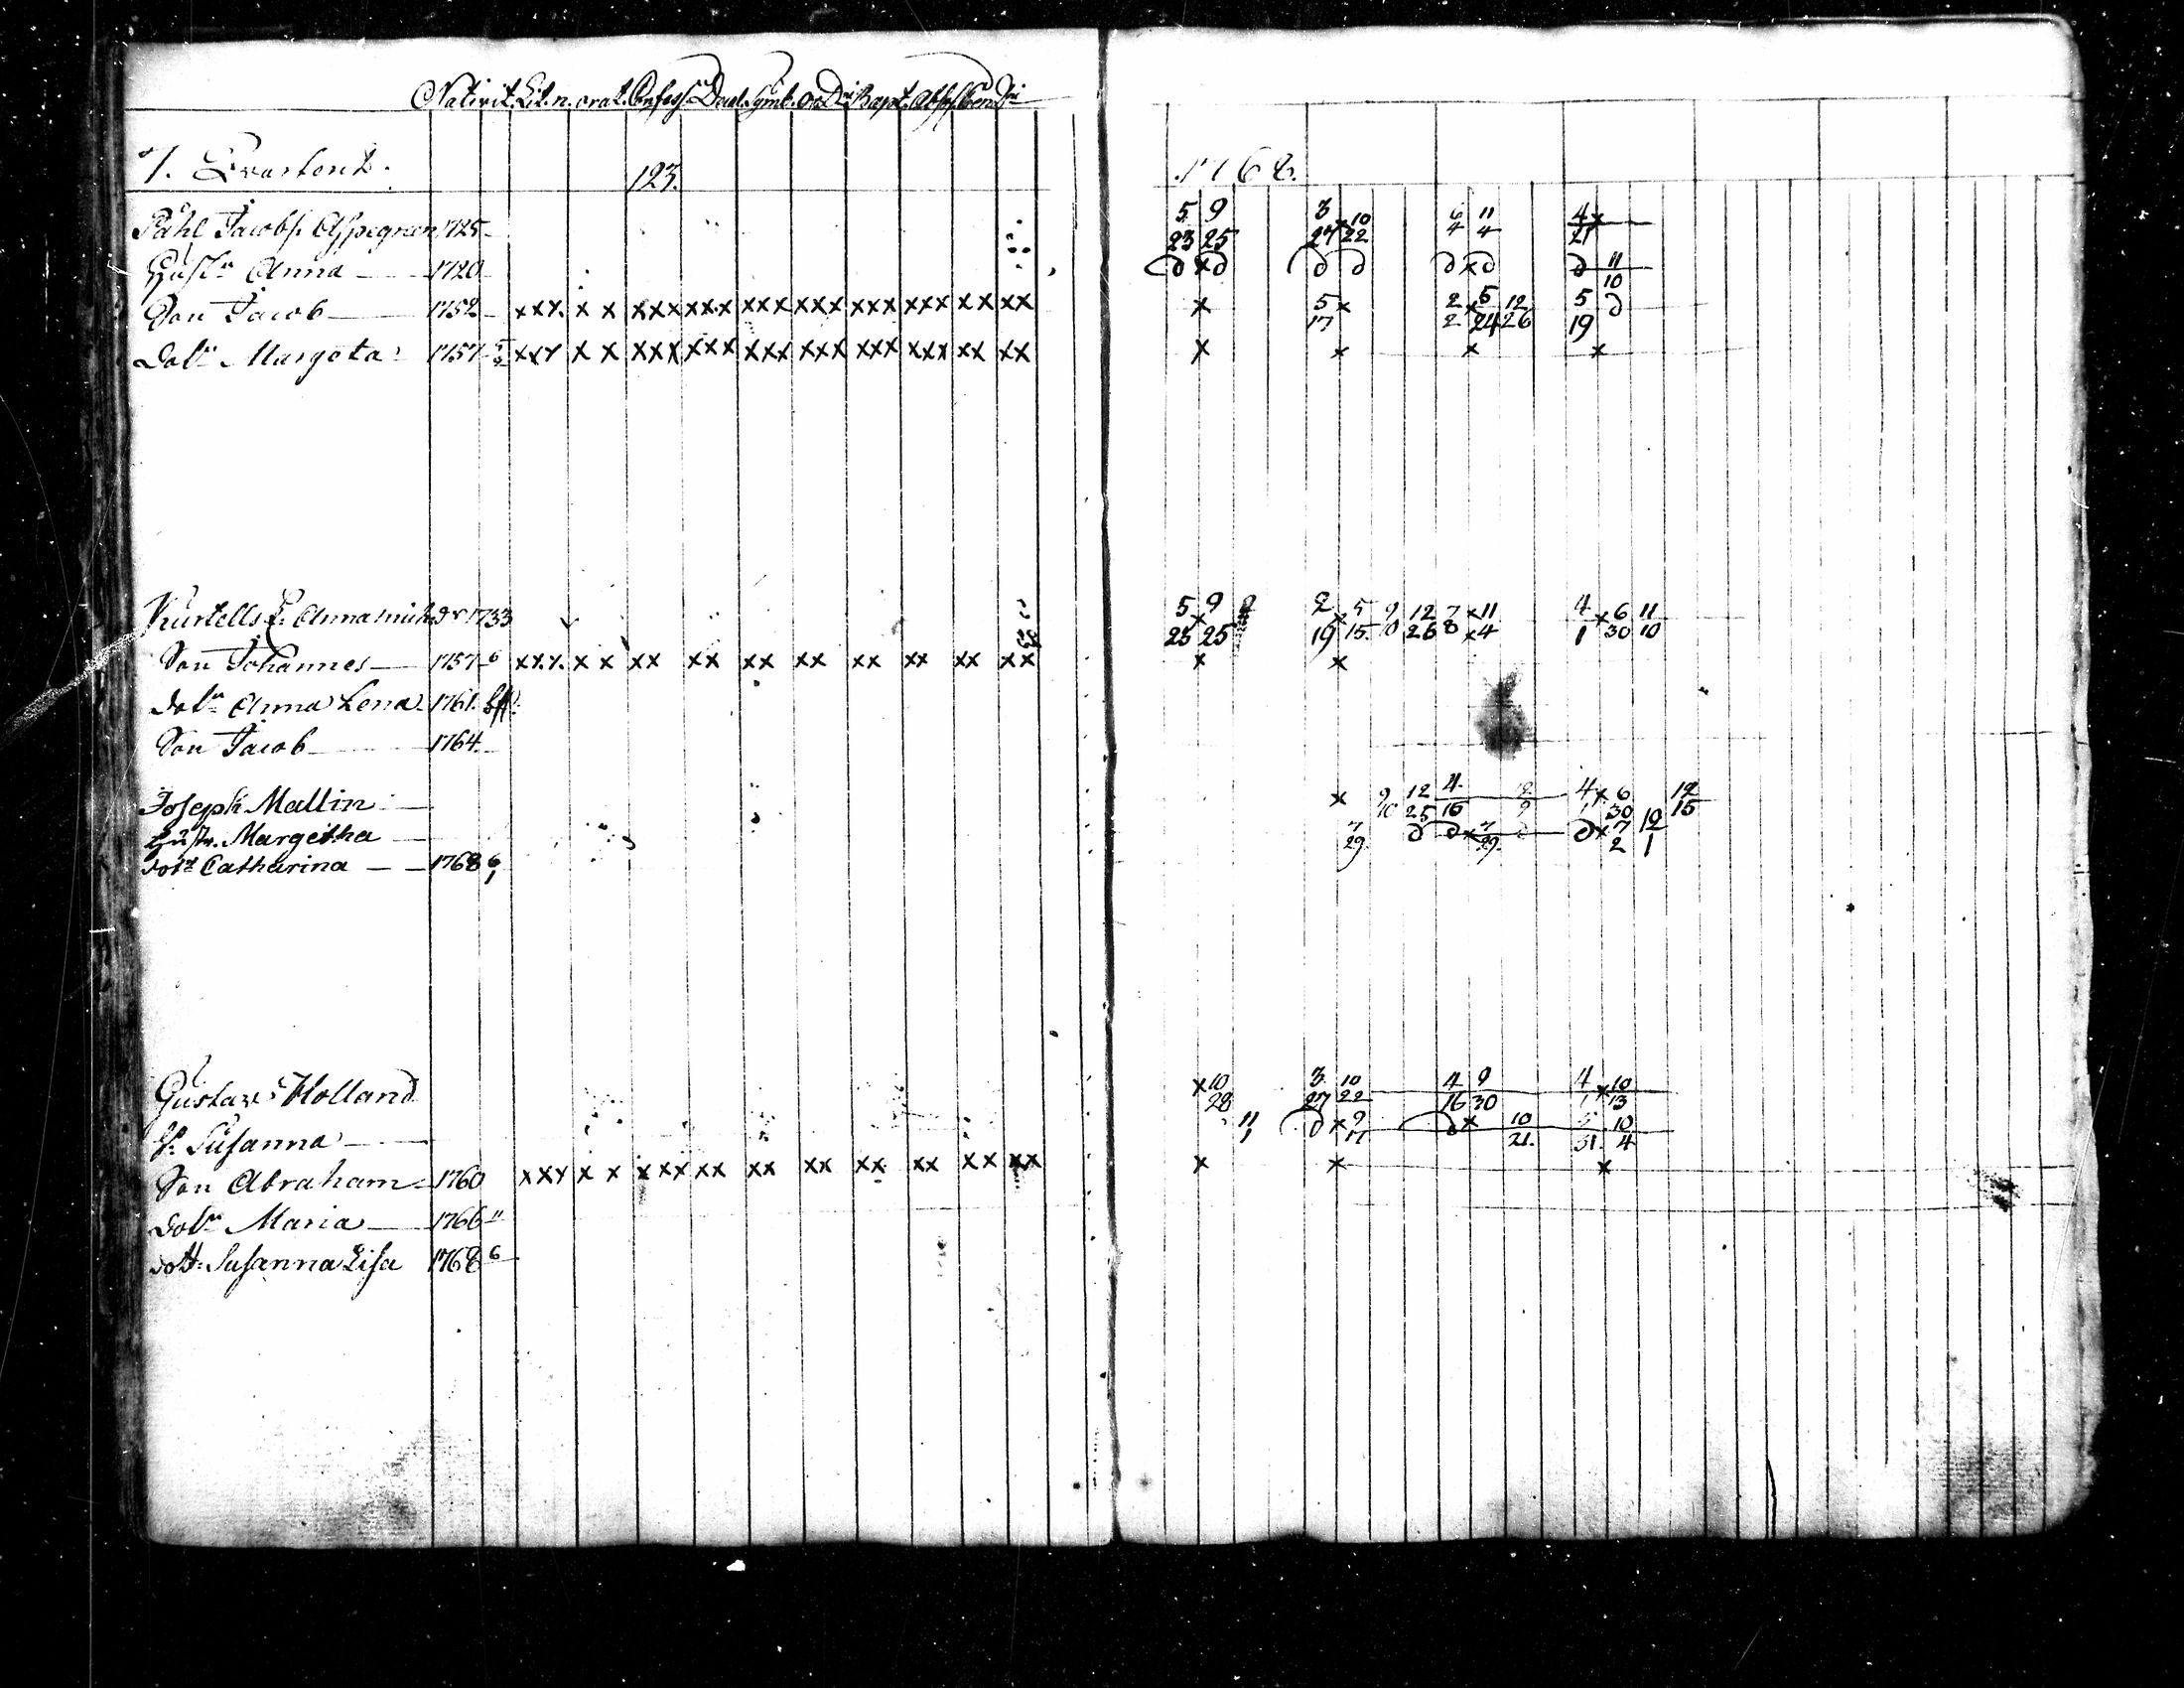 Nativit. Lit. n. orat. Confess. Decal. Symb. Or. Dni Bapt. Abss. Cen. Dni
7. Qvarteret. 123. 1768.
Påhl Jacobss. Aspegren 1725
Hustr Anna 1720
Son Jacob 1752 xxx x x xxx xxx xxx xxx xxx xxx xx xx
Dotr Margeta 1757 xxx x x xxx xxx xxx xxx xxx xxx xx xx
Anna 1733
Son Johannes 1757 6 xxx x x xx xx xx xx xx xx xx xx
Dotr Anna Lena 1761
Son Jacob 1764
Joseph Mallin
Hustr. Margetha
Dotr Catharina 1768 6/1
Gustaw Holland
H. Susanna
Son Abraham 1760 xxx x x x xx xx xx xx xx xx xx xx
Dotr Maria 1766 11
Dott. Susanna Lisa 1768 6
5/23 9/25 3/27 x 10/22 6/4 11/4 4/21 x
x x 11/10
x 5/17 x 2/2 x 5/24 12/26 5/19
x x x x
5/25 x 9/25 2/19 x 5/15 9/10 12/26 7/8 x 11/4 4/1 x 6/30 11/10
x x
x 9/10 12/25 4/16 4/1 x 6/30 12/15
7/29 x 7/29 x 7/2 12/1
x 10/28 3/27 10/22 4/16 9/30 4/1 x 10/13
11/1 x 9/17 x 10/21 10/4
x x x